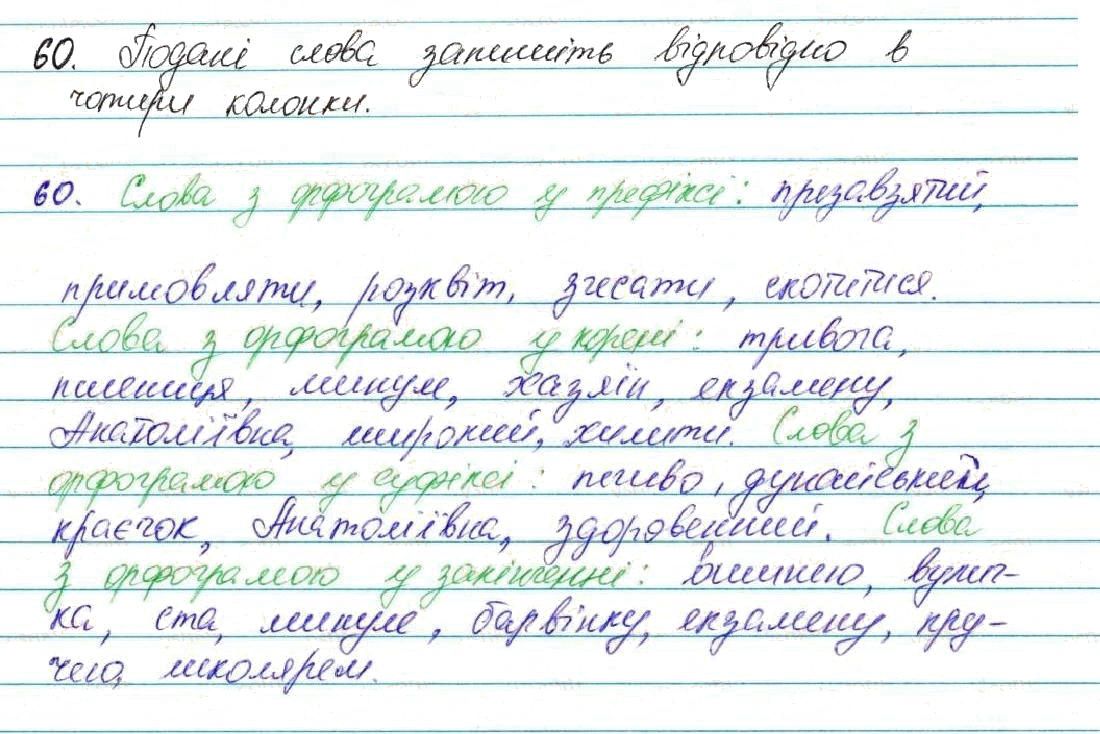 60. Подані слова запишіть відповідно в
чотири колонки.
60. Слова з орфограмою у префіксі: презавзятий,
примовляти, розквіт, зчесати, скотитися.
Слова з орфограмою у корені: тривога,
пшениця, минуле, хазяїн, екзамену,
Анатоліївна, широкий, хилити. Слова з
орфограмою у суфіксі: печиво, дунайський,
краєчок, Анатоліївна, здоровенний. Слова
з орфограмою у закінченні: вишнею, вулич-
ка, ста, минуле, барвінку, екзамену, кру-
чею, школярем.